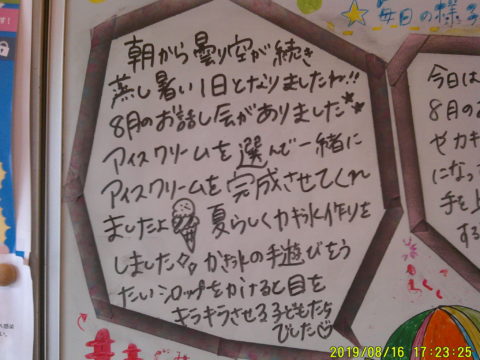 毎日の様子
朝から曇り空が続き
蒸し暑い1日となりましたね!!
8月のお話し会がありました
アイスクリームを選んで一緒に
アイスクリームを完成させてくれ
ましたよ 夏らしくカキ氷作りを
しました。かき氷の手遊びをう
たいシロップをかけると目を
キラキラさせる子どもたち
でした
今日は
8月の
やカキ
になっ
手を上
する
2019/08/16 17:23:25